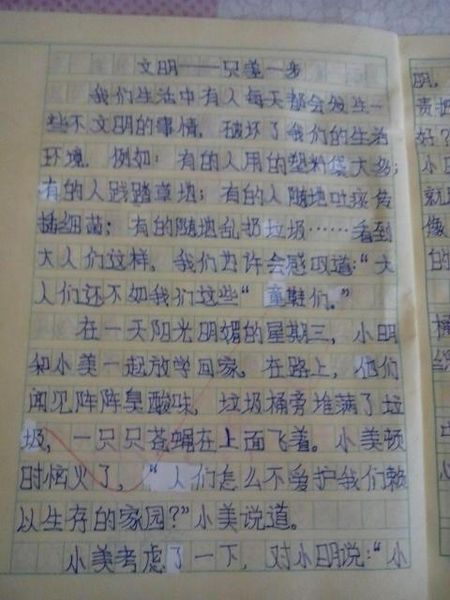 文明——只差一步
我们生活中有人每天都会发生一
些不文明的事情，破坏了我们的生活
环境。例如：有的人用的塑料袋太多；
有的人践踏草地；有的人随地吐痰传
播细菌；有的随地乱扔垃圾……看到
大人们这样，我们也许会感叹道：“大
人们还不如我们这些“童鞋们。”
在一天阳光明媚的星期三，小明
和小美一起放学回家。在路上，他们
闻见阵阵臭酸味，垃圾桶旁堆满了垃
圾，一只只苍蝇在上面飞着。小美顿
时恼火了，“人们怎么不爱护我们赖
以生存的家园？”小美说道。
小美考虑了一下，对小明说：“小
明，
责把
好？
小
就
像
的